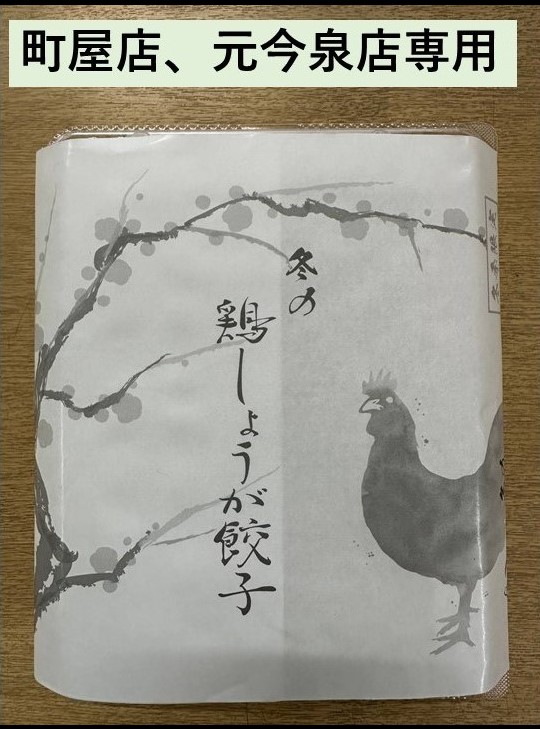 町屋店、元今泉店専用
冬の
鶏しょうが餃子